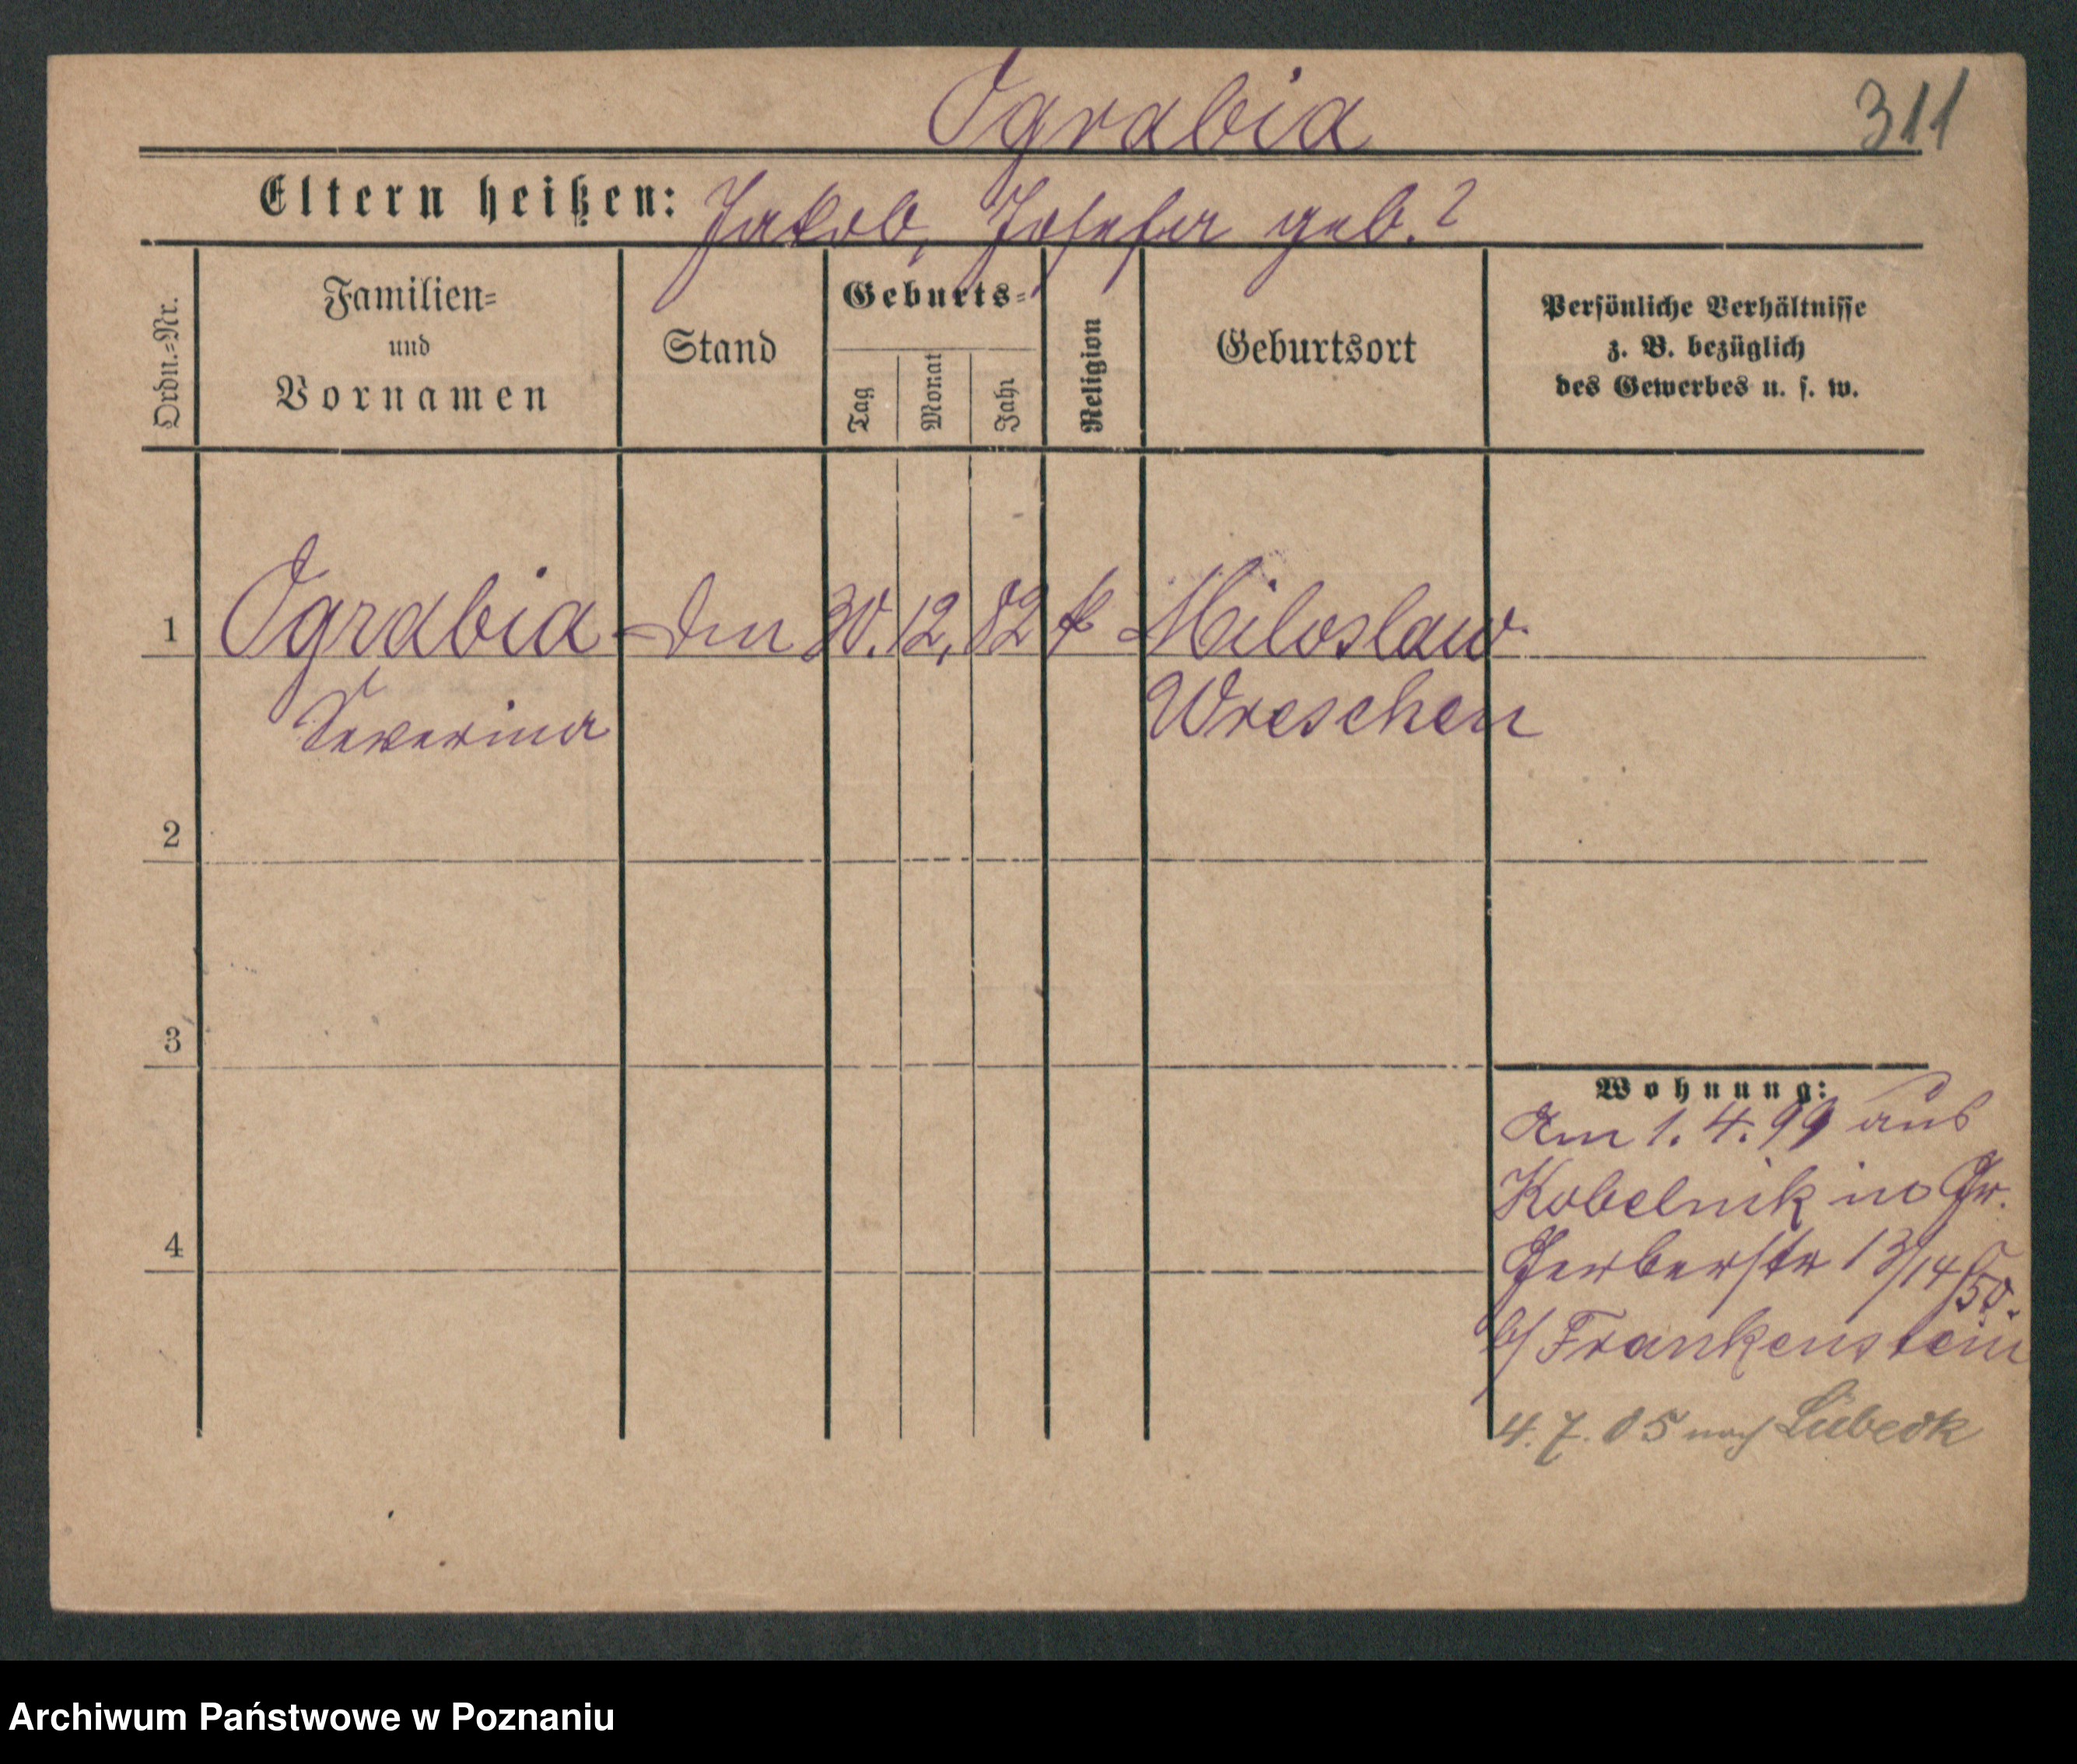 Ograbia
311
Eltern heißen: Jakob, Josefa geb. ?
Ordn.=Nr.
Familien=
und
Vornamen
Stand
Geburts=
Tag
Monat
Jahr
Religion
Geburtsort
Persönliche Verhältnisse
z. B. bezüglich
des Gewerbes u. s. w.
1 Ograbia 30. 12. 82 k Miloslaw
Severina Wreschen
2
3
Wohnung:
Am 1. 4. 99 aus
Kobelnik in Gr.
4
Gerberstr 13/14/50.
b/ Frankenstein
4. 7. 05 nach Lübeck
Archiwum Państwowe w Poznaniu